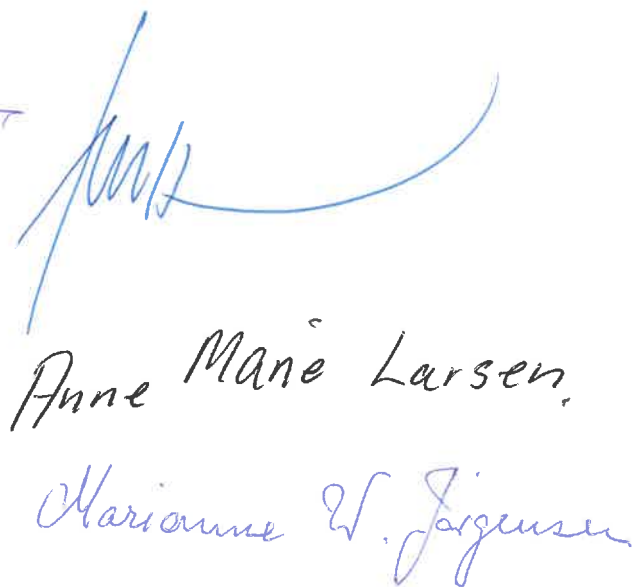 Anne Marie Larsen.
Marianne W. Jørgensen